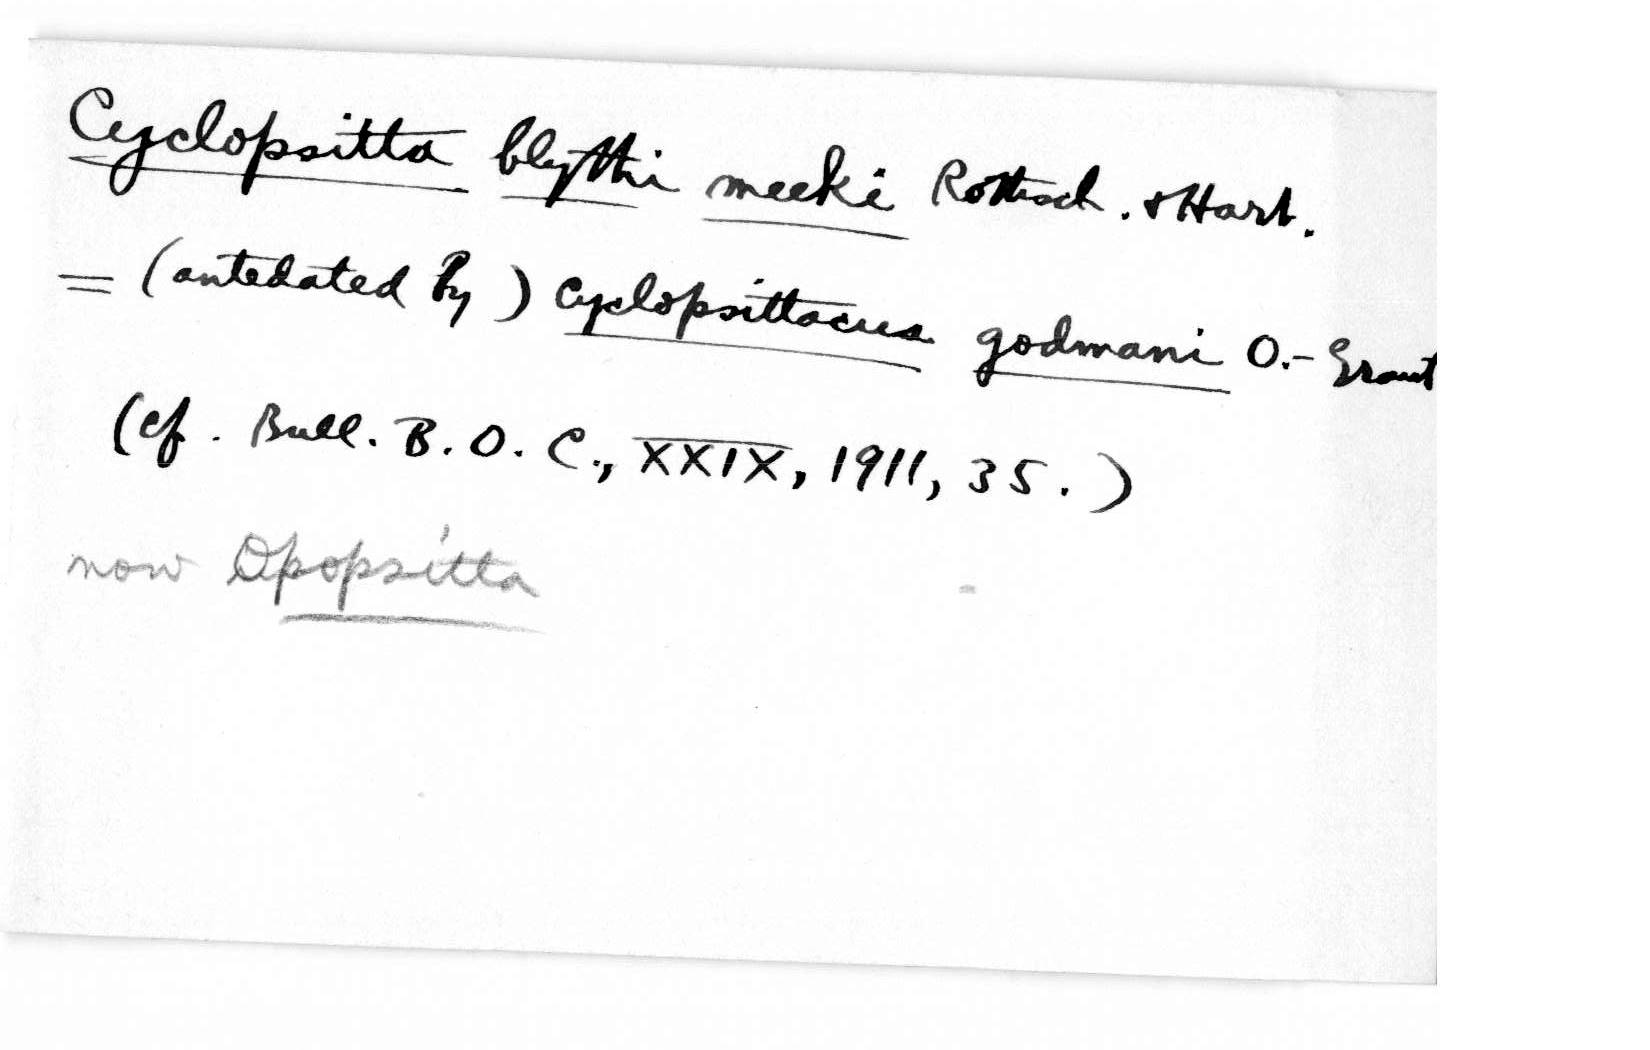 Cyclopsitta blythi meeki Rothsch. & Hart.
= (antedated by) Cyclopsittacus godmani O.-Grant
(cf. Bull. B.O.C., XXIX, 1911, 35.)
now Opopsitta